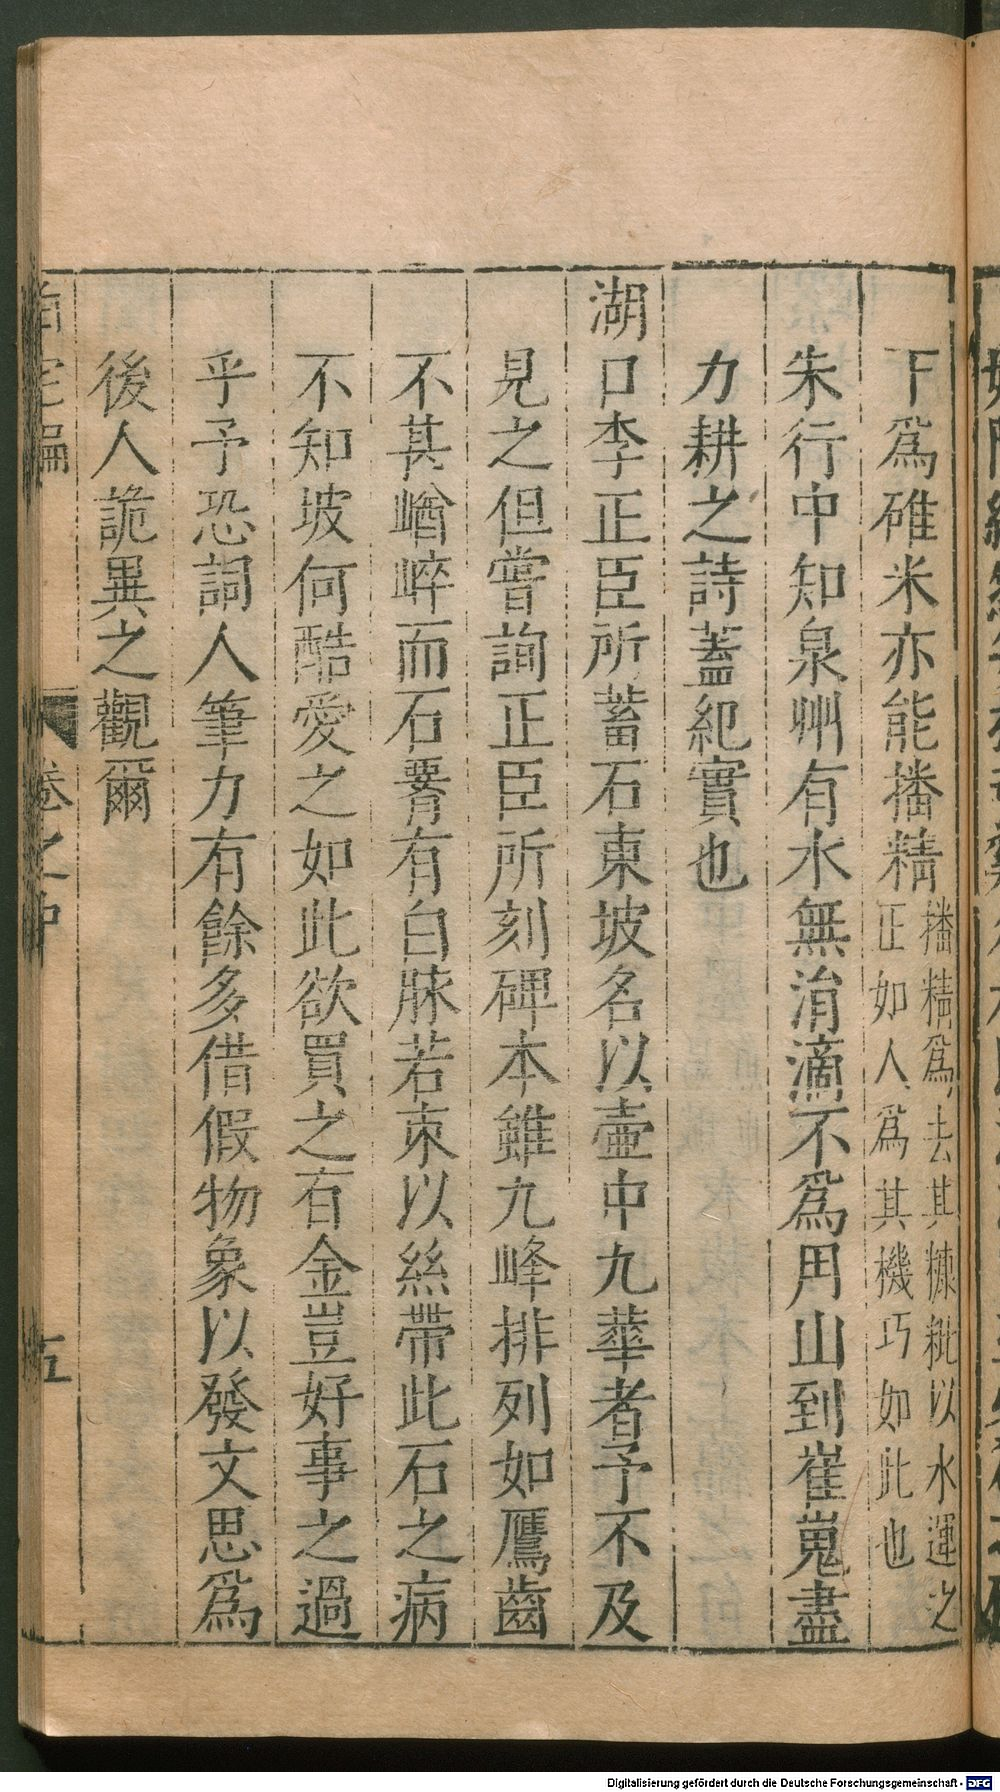 下為碓米亦能播精播精為去其糠粃以水運之正如人為其機巧如此也
朱行中知泉州有水無涓滴不為用山到崔嵬盡
力耕之詩蓋紀實也
湖口李正臣所蓄石東坡名以壺中九華者予不及
見之但嘗詢正臣所刻碑本雖九峰排列如鴈齒
不甚崷崪而石䏿有白脉若束以絲帶此石之病
不知坡何酷愛之如此欲買之百金豈好事之過
乎予恐詞人筆力有餘多借假物象以發文思為
後人詭異之觀爾
卷之中
五
Digitalisierung gefördert durch die Deutsche Forschungsgemeinschaft - DFG